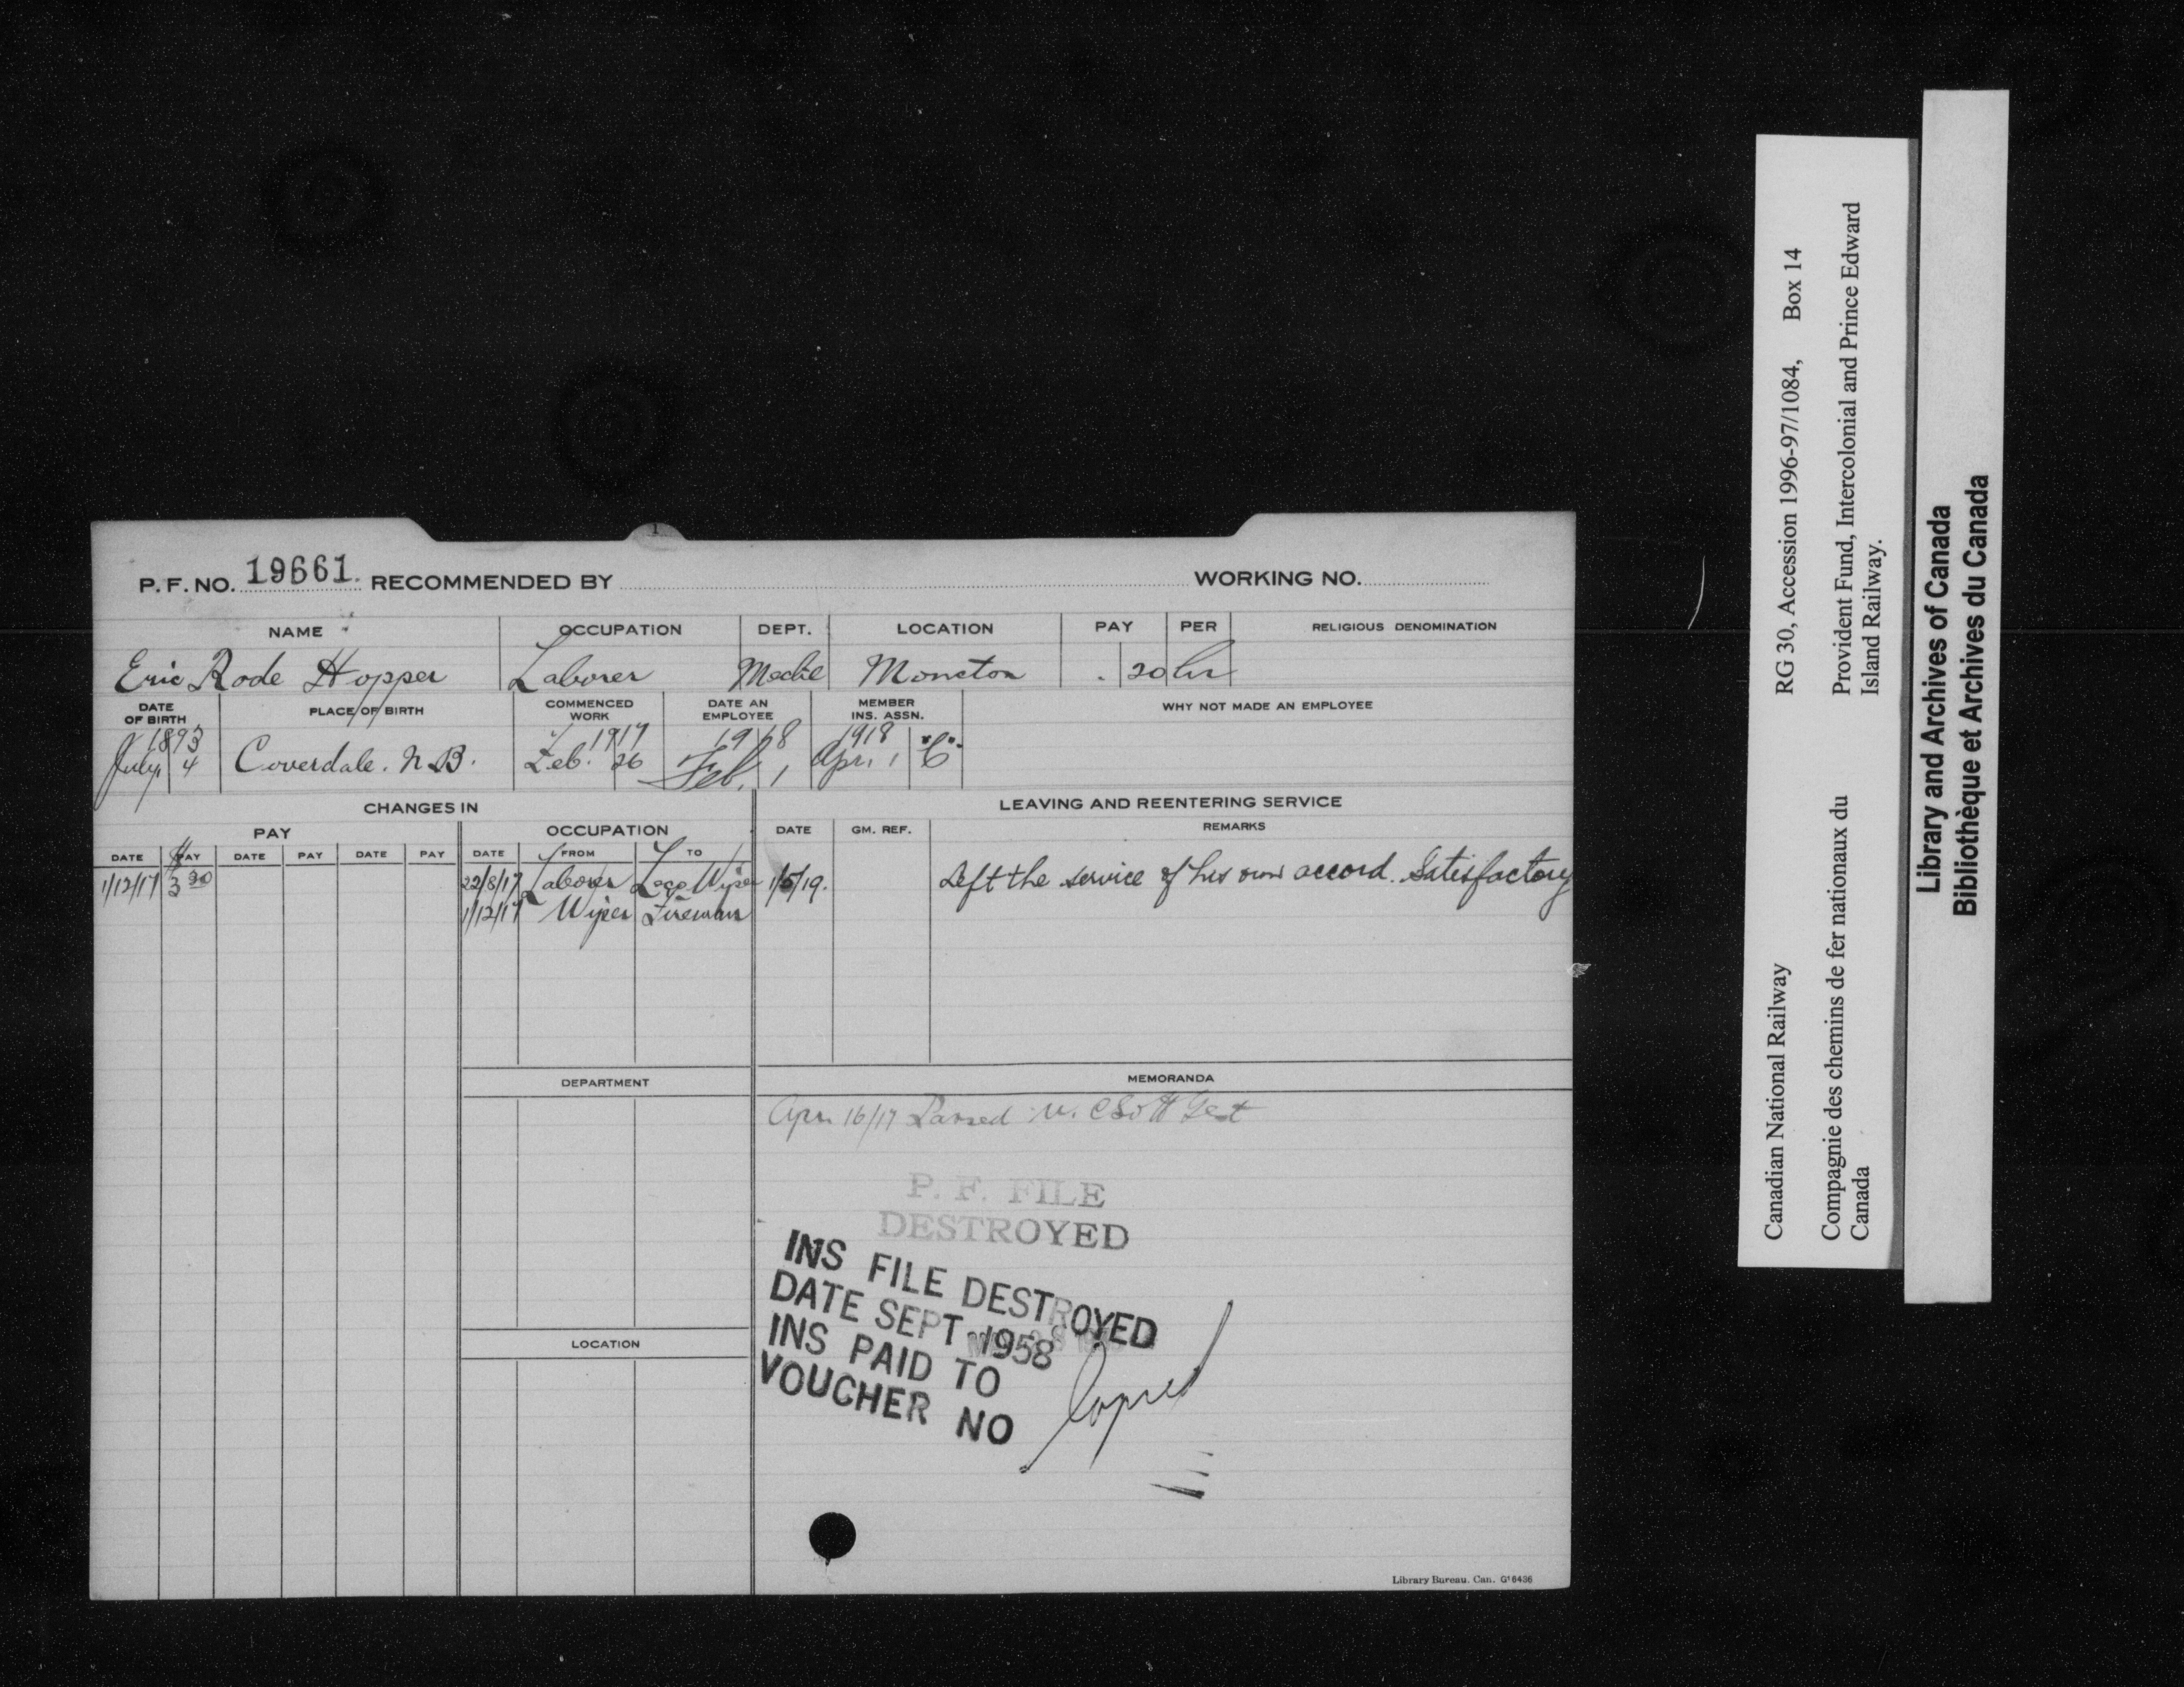 P. F. NO. 19661. RECOMMENDED BY WORKING NO.
NAME OCCUPATION DEPT. LOCATION PAY PER RELIGIOUS DENOMINATION
Eric Rode Hopper Laborer Mechl Moncton . 20 hr
DATE OF BIRTH PLACE OF BIRTH COMMENCED WORK DATE AN EMPLOYEE MEMBER INS. ASSN. WHY NOT MADE AN EMPLOYEE
1893 1917 1918 1918 "C"
July 4 Coverdale. N.B. Feb. 26 Feb. 1 Apr. 1
CHANGES IN LEAVING AND REENTERING SERVICE
PAY OCCUPATION DATE GM. REF. REMARKS
DATE PAY DATE PAY DATE PAY DATE FROM TO
1/12/17 3 90 22/8/17 Laborer Loco Wiper 1/5/19. Left the service of his own accord. Satisfactory
1/12/17 Wiper Fireman
DEPARTMENT MEMORANDA
Apr. 16/17 Passed Test
P. F. FILE
DESTROYED
INS FILE DESTROYED
DATE SEPT 1958
INS PAID TO
VOUCHER NO
LOCATION
Library Bureau. Can. G16436
Canadian National Railway RG 30, Accession 1996-97/1084, Box 14
Compagnie des chemins de fer nationaux du Provident Fund, Intercolonial and Prince Edward
Canada Island Railway.
Library and Archives of Canada
Bibliothèque et Archives du Canada